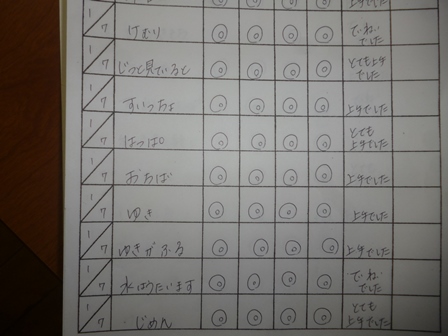 1/7 けむり ◎ ◎ ◎ ◎ てぃねぃでした
1/7 じっと見ていると ◎ ◎ ◎ ◎ とても上手でした
1/7 すいっちょ ◎ ◎ ◎ ◎ 上手でした
1/7 はっぱ ◎ ◎ ◎ ◎ とても上手でした
1/7 おちば ◎ ◎ ◎ ◎ 上手でした
1/7 ゆき ◎ ◎ ◎ ◎ 上手でした
1/7 ゆきがふる ◎ ◎ ◎ ◎ 上手でした
1/7 水はうたいます ◎ ◎ ◎ ◎ てぃねぃでした
1/7 じめん ◎ ◎ ◎ ◎ とても上手でした